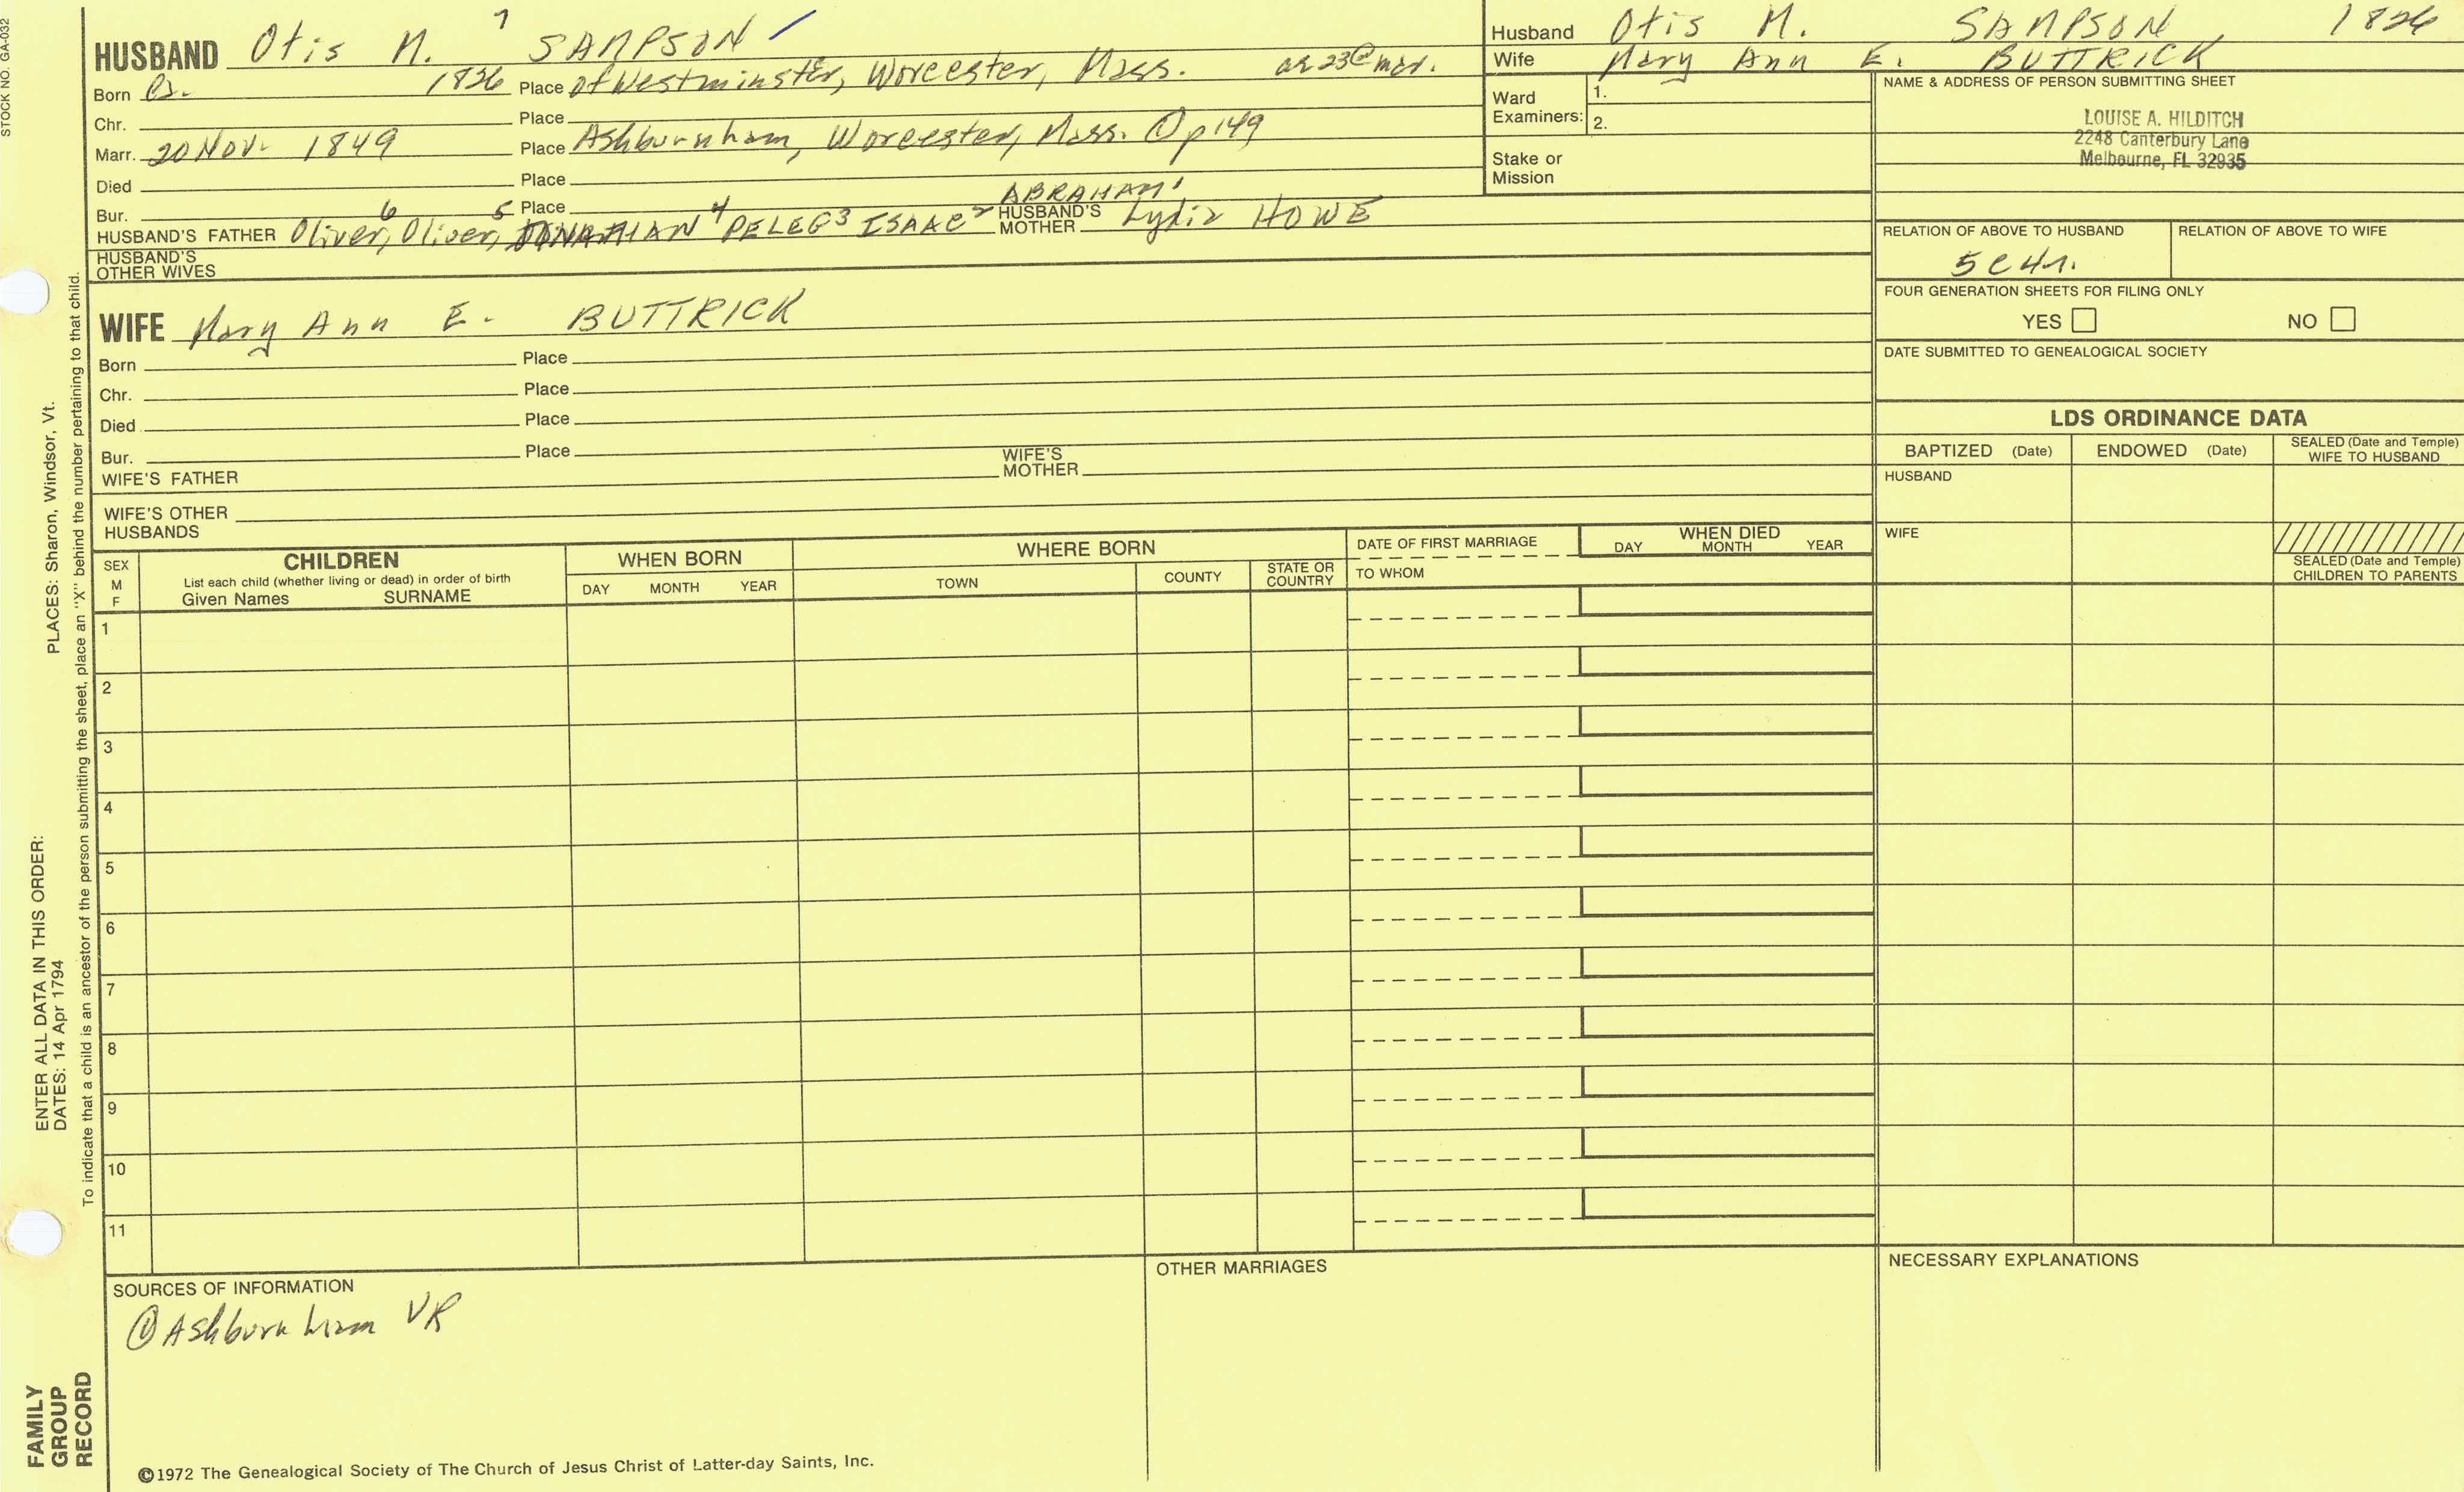 STOCK NO. GA-032
7
HUSBAND Otis M. SAMPSON
Born Ca. 1826 Place of Westminster, Worcester, Mass. ae 23@mar.
Chr. Place
Marr. 20 Nov. 1849 Place Ashburnham, Worcester, Mass. ① p149
Died Place
Bur. Place
HUSBAND'S FATHER Oliver,6 Oliver,5 JONATHAN4 PELEG3 ISAAC2 ABRAHAM1 HUSBAND'S MOTHER Lydia HOWE
HUSBAND'S OTHER WIVES
WIFE Mary Ann E. BUTTRICK
Born Place
Chr. Place
Died Place
Bur. Place
WIFE'S FATHER WIFE'S MOTHER
WIFE'S OTHER HUSBANDS
Husband Otis M. SAMPSON 1826
Wife Mary Ann E. BUTTRICK
Ward Examiners: 1.
2.
Stake or Mission
NAME & ADDRESS OF PERSON SUBMITTING SHEET
LOUISE A. HILDITCH
2248 Canterbury Lane
Melbourne, FL 32935
RELATION OF ABOVE TO HUSBAND RELATION OF ABOVE TO WIFE
5c4r.
FOUR GENERATION SHEETS FOR FILING ONLY
YES NO
DATE SUBMITTED TO GENEALOGICAL SOCIETY
LDS ORDINANCE DATA
BAPTIZED (Date) ENDOWED (Date) SEALED (Date and Temple) WIFE TO HUSBAND
HUSBAND
WIFE
SEALED (Date and Temple) CHILDREN TO PARENTS
SEX M F
CHILDREN
List each child (whether living or dead) in order of birth
Given Names SURNAME
WHEN BORN
DAY MONTH YEAR
WHERE BORN
TOWN COUNTY STATE OR COUNTRY
DATE OF FIRST MARRIAGE
TO WHOM
WHEN DIED
DAY MONTH YEAR
1
2
3
4
5
6
7
8
9
10
11
SOURCES OF INFORMATION
① Ashburnham VR
OTHER MARRIAGES
NECESSARY EXPLANATIONS
©1972 The Genealogical Society of The Church of Jesus Christ of Latter-day Saints, Inc.
FAMILY GROUP RECORD
ENTER ALL DATA IN THIS ORDER:
DATES: 14 Apr 1794
PLACES: Sharon, Windsor, Vt.
To indicate that a child is an ancestor of the person submitting the sheet, place an "X" behind the number pertaining to that child.